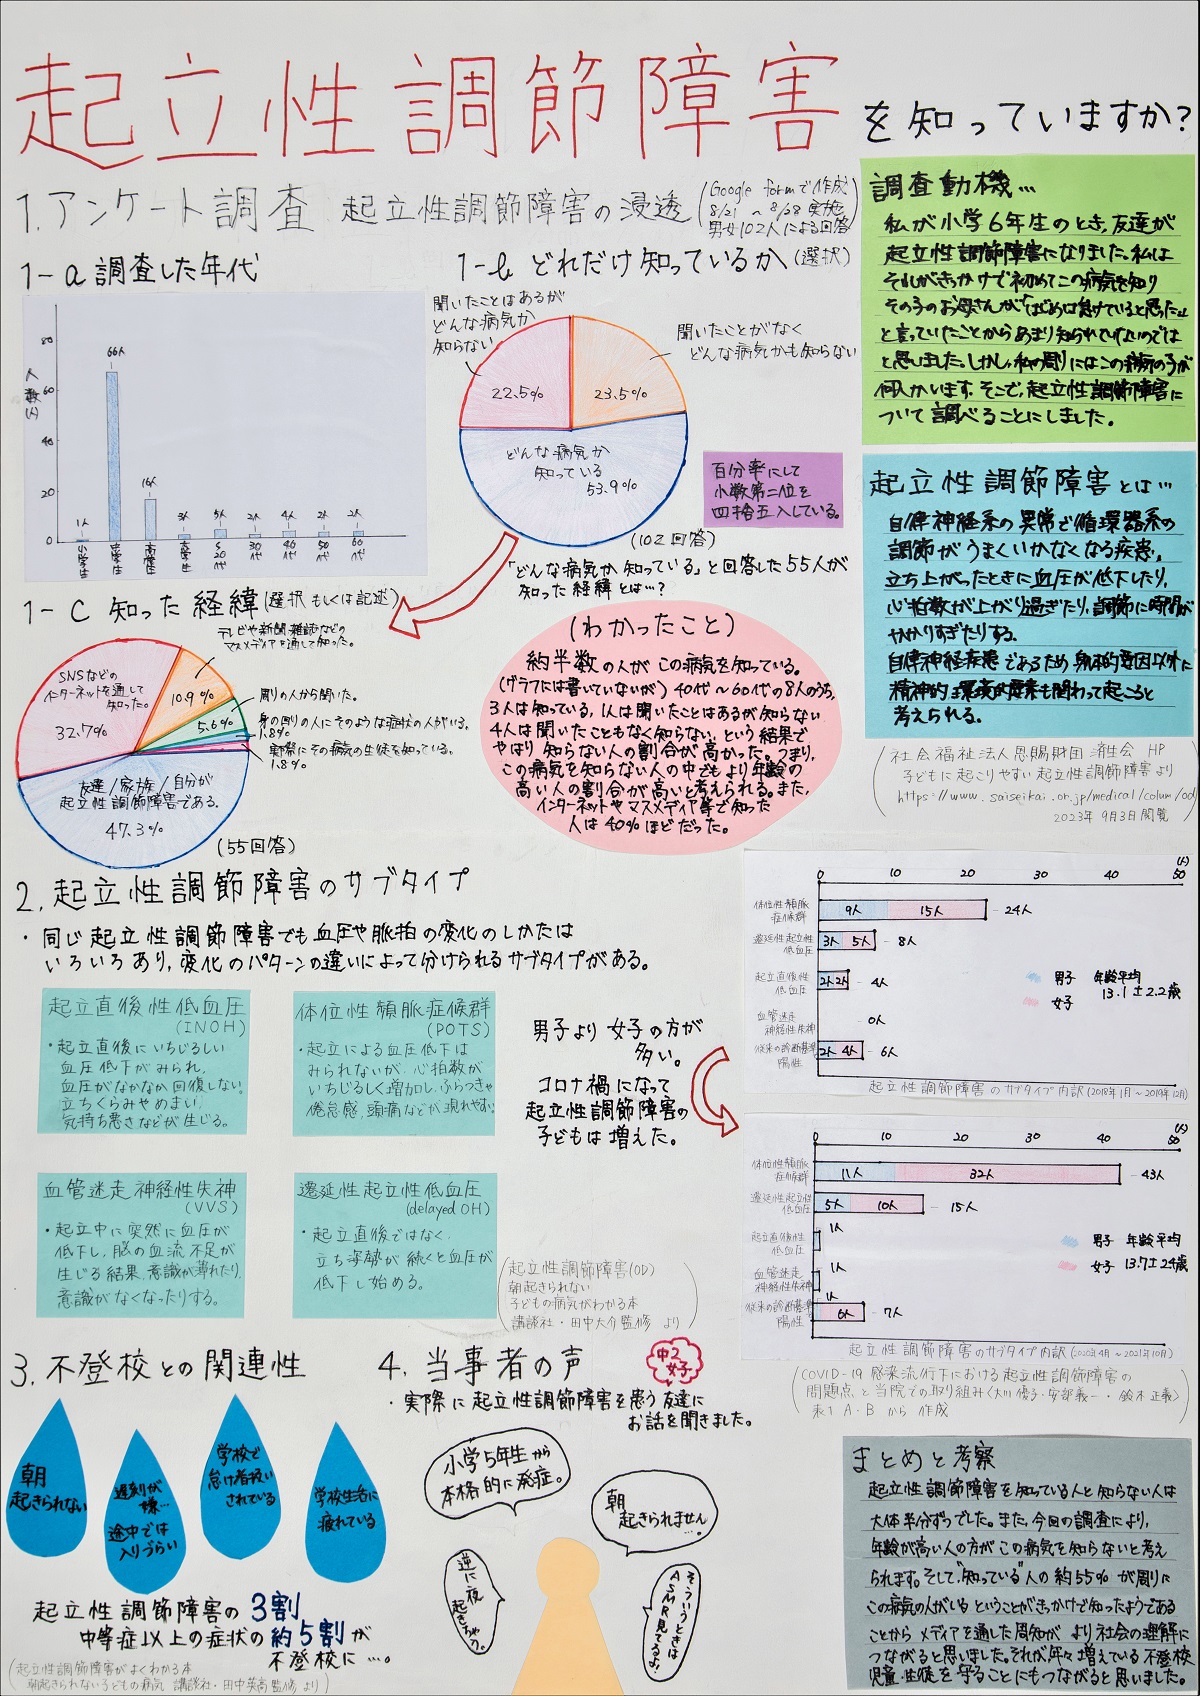 起立性調節障害を知っていますか?
1.アンケート調査 起立性調節障害の浸透
(Google formで作成
8/21 ~ 8/28 実施
男女102人による回答)
1-a 調査した年代
人数(人)
80
60
40
20
0
1人
66人
16人
3人
5人
2人
4人
2人
2人
小学生
中学生
高校生
大学生
20代
30代
40代
50代
60代
1-b どれだけ知っているか(選択)
聞いたことはあるが
どんな病気か
知らない
22.5%
聞いたことがなく
どんな病気かも知らない
23.5%
どんな病気か
知っている
53.9%
(102回答)
百分率にして
小数第二位を
四捨五入している。
「どんな病気か知っている」と回答した55人が
知った経緯とは…?
1-c 知った経緯(選択もしくは記述)
テレビや新聞・雑誌などの
マスメディアを通して知った。
10.9%
SNSなどの
インターネットを通して
知った。
32.7%
周りの人から聞いた。
5.6%
身の回りの人にそのような症状の人がいる。
1.8%
実際にその病気の生徒を知っている。
1.8%
友達/家族/自分が
起立性調節障害である。
47.3%
(55回答)
(わかったこと)
約半数の人がこの病気を知っている。
(グラフには書いていないが)40代~60代の8人のうち、
3人は知っている、1人は聞いたことはあるが知らない
4人は聞いたこともなく知らない、という結果で
やはり知らない人の割合が高かった。つまり、
この病気を知らない人の中でもより年齢の
高い人の割合が高いと考えられる。また、
インターネットやマスメディア等で知った
人は40%ほどだった。
調査動機…
私が小学6年生のとき、友達が
起立性調節障害になりました。私は
それがきっかけで初めてこの病気を知り
その子のお母さんが「はじめは怠けていると思った」
と言っていたことからあまり知られていないのでは
と思いました。しかし、私の周りにはこの病気の子が
何人かいます。そこで、起立性調節障害に
ついて調べることにしました。
起立性調節障害とは…
自律神経系の異常で循環器系の
調節がうまくいかなくなる疾患。
立ち上がったときに血圧が低下したり、
心拍数が上がり過ぎたり、調節に時間が
かかりすぎたりする。
自律神経疾患であるため身体的要因以外に
精神的、環境的要素も関わって起こると
考えられる。
(社会福祉法人恩賜財団済生会 HP
子どもに起こりやすい起立性調節障害より
https://www.saiseikai.or.jp/medical/column/od
2023年 9月3日閲覧)
2.起立性調節障害のサブタイプ
・同じ起立性調節障害でも血圧や脈拍の変化のしかたは
いろいろあり、変化のパターンの違いによって分けられるサブタイプがある。
起立直後性低血圧
(INOH)
・起立直後にいちじるしい
血圧低下がみられ、
血圧がなかなか回復しない。
立ちくらみやめまい、
気持ち悪さなどが生じる。
体位性頻脈症候群
(POTS)
・起立による血圧低下は
みられないが、心拍数が
いちじるしく増加し、ふらつきや
倦怠感、頭痛などが現れやすい
血管迷走神経性失神
(VVS)
・起立中に突然に血圧が
低下し、脳の血流不足が
生じる結果、意識が薄れたり、
意識がなくなったりする。
遷延性起立性低血圧
(delayed OH)
・起立直後ではなく、
立ち姿勢が続くと血圧が
低下し始める。
(起立性調節障害(OD)
朝起きられない
子どもの病気がわかる本
講談社・田中大介監修 より)
男子より女子の方が
多い。
コロナ禍になって
起立性調節障害の
子どもは増えた。
(人)
0 10 20 30 40 50
体位性頻脈
症候群
9人 15人 -24人
遷延性起立性
低血圧
3人 5人 -8人
起立直後性
低血圧
2人 2人 -4人
血管迷走
神経性失神
-0人
従来の診断基準
陽性
2人 4人 -6人
男子 年齢平均
女子 13.1±2.2歳
起立性調節障害のサブタイプ内訳(2018年1月~2019年12月)
(人)
0 10 20 30 40 50
体位性頻脈
症候群
11人 32人 -43人
遷延性起立性
低血圧
5人 10人 -15人
起立直後性
低血圧
1人
血管迷走
神経性失神
1人
従来の診断基準
陽性
1人 6人 -7人
男子 年齢平均
女子 13.7±2.4歳
起立性調節障害のサブタイプ内訳(2020年4月~2021年10月)
(COVID-19感染流行下における起立性調節障害の
問題点と当院での取り組み〈大川優子・安部義一・鈴木正義〉
表1 A・Bから 作成)
3.不登校との関連性
朝
起きられない
遅刻が
嫌…
途中では
入りづらい
学校で
怠け者扱い
されている
学校生活に
疲れている
起立性調節障害の3割
中等症以上の症状の約5割が
不登校に…。
(起立性調節障害がよくわかる本
朝起きられない子どもの病気 講談社・田中英高監修より)
4.当事者の声
中2
女子
・実際に起立性調節障害を患う友達に
お話を聞きました。
小学5年生から
本格的に発症。
朝
起きられません
…。
逆に夜
起きちゃう。
そういうときは
ASMR見てるよ。
まとめと考察
起立性調節障害を知っている人と知らない人は
大体半分ずつでした。また、今回の調査により、
年齢が高い人の方がこの病気を知らないと考え
られます。そして、"知っている"人の約55%が周りに
この病気の人がいるということがきっかけで知ったようである
ことからメディアを通した周知がより社会の理解に
つながると思いました。それが年々増えている不登校
児童・生徒を守ることにもつながると思いました。